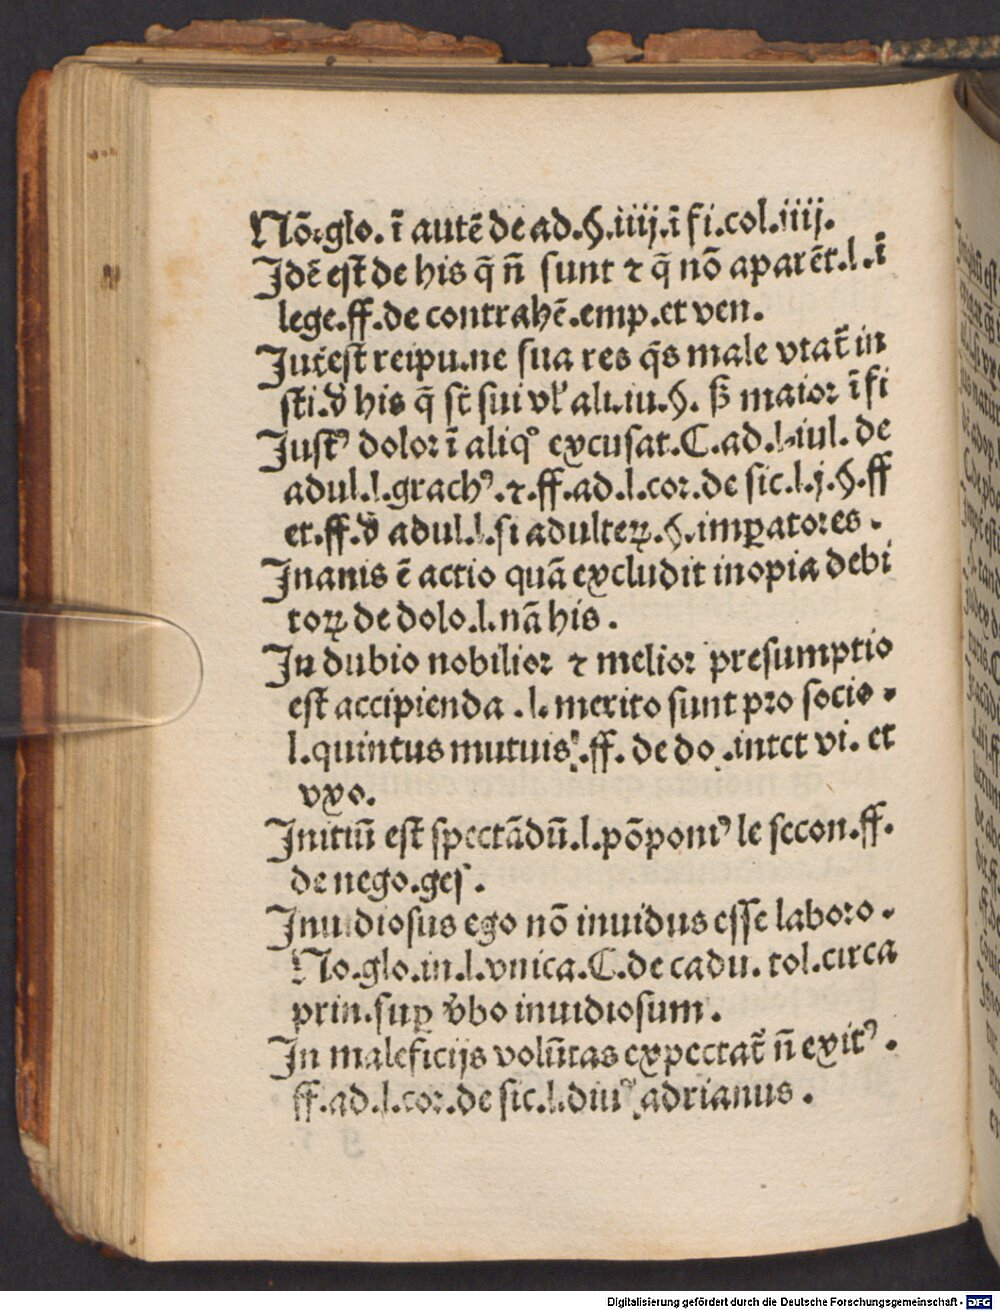 Nō.glo.ī autē de ad.§.iiij.ī fi.col.iiij.
Jdē est̄ de his q̄ n̄ sunt ⁊ q̄ nō aparēt.l.ī
lege.ff.de contrahē.emp.et ven.
est̄ reipu.ne sua res q̄s male vtat̄ in
sti.đ his q̄ st̄ sui vꝉ ali.iu.§. maior ī fi
Justꝰ dolor ī aliqͦ excusat.C.ad.l.iul.de
adul.l.grachꝰ.⁊.ff.ad.l.cor.de sic.l.j.§.ff
et.ff.đ adul.l.si adulteꝝ.§.imꝑatores.
Jnanis ē actio quā excludit inopia debi
toꝝ de dolo.l.nā his.
Jn dubio nobilior ⁊ melior presumptio
est accipienda.l.merito sunt pro socio.
l.quintus mutuis.ff.de do.intet vi.et
vxo.
Jnitiū est̄ spectādū.l.pōponiꝰ le secon.ff.
de nego.ges.
Jnuidiosus ego nō inuidus esse laboro.
No.glo.in.l.vnica.C.de cadu.tol.circa
prin.suꝑ v̄bo inuidiosum.
Jn maleficijs volūtas expectat̄ n̄ exitꝰ.
ff.ad.l.cor.de sic.l.diuꝰ adrianus.
Digitalisierung gefördert durch die Deutsche Forschungsgemeinschaft - DFG